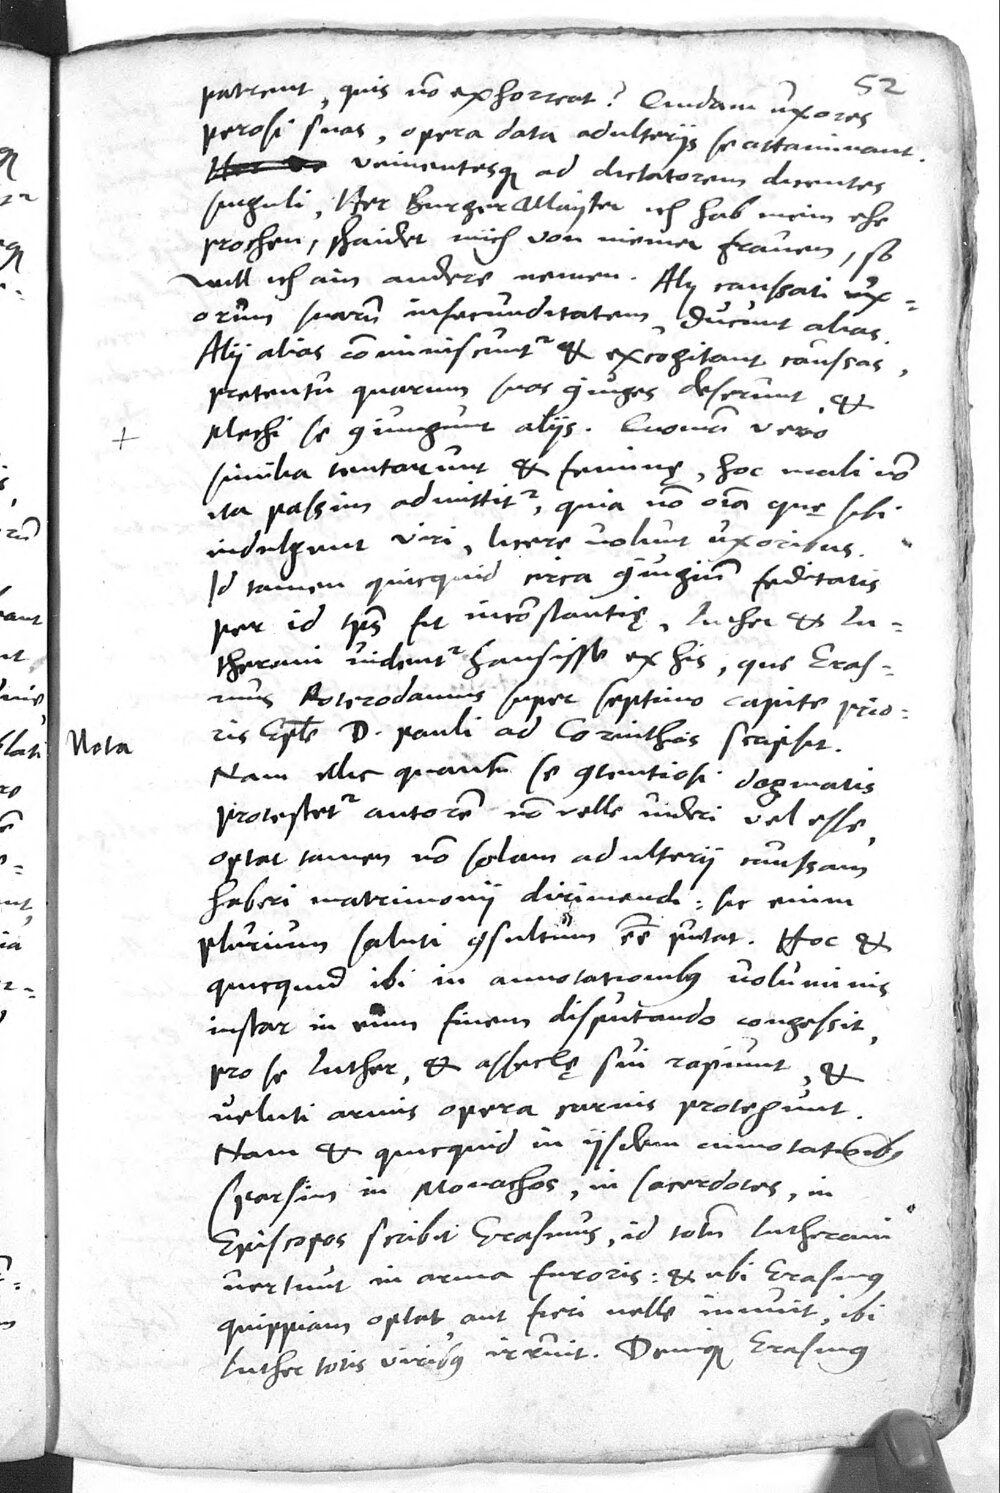 52
patrent, quis nō exhorreat? Quidam uxores
perosi suas, opera data adulterijs se attaminant.
venientesq ad dictatorem dicentes
singuli, Her BurgerMayster ich hab mein ehe
prochen, schaidet mich von meiner frauen, so
will ich ain andere nemen. Alij caussati ux=
orum suarū infecunditatem, ducunt alias.
Alij alias cōminiscunt² & excogitant caussas,
pretextu quarum suas ꝯiuges deserunt, &
Mechi se ꝯiungunt alijs. Quomā vero
similia tentarunt & feminę, hoc mali nō
ita passim admittit², quia nō oīa quę sibi
indulgent viri, licere uolunt uxoribus.
Id tamen quicquid circa ꝯiugiū feditatis
per id tps̄ fit incōstantię, Luther & Lu=
therani uident² hausisse ex his, que Eras=
mus Roterodamus super septimo capite prio=
ris Epl̄e D. pauli ad Corinthios scripsit.
Nota
Nam illic quantū se ꝯtentiosi dogmatis
protestet² autorē nō velle uideri vel esse,
optat tamen nō solam adulterij caussam
haberi matrimonij dirimendi: sic enim
plurium saluti ꝯsultum eē̄ putat. Hoc &
quicquid ibi in annotationibꝰ uoluminis
instar in eum finem disputando congessit,
pro se Luther, & asseclę sui rapiunt, &
ueluti armis opera carnis protegunt.
Nam & quicquid in ijsdem annotationibꝰ
sparsim in Monachos, in sacerdotes, in
Episcopos scribit Erasmus, id totū Lutherani
uertunt in arma furoris: & ubi Erasmꝰ
quippiam optat, aut fieri uelle innuit, ibi
Luther totis viribꝰ irruit. Deniq Erasmꝰ